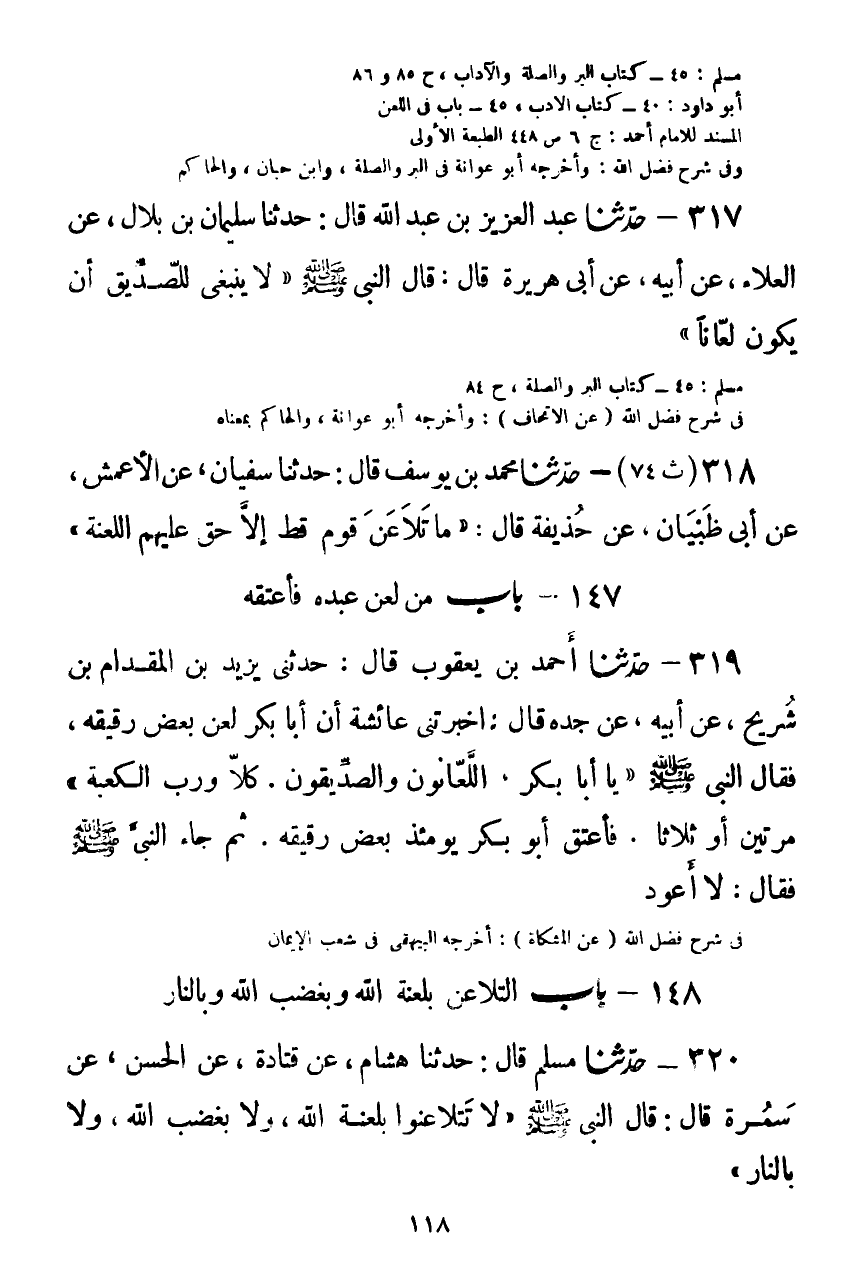 مسلم : ٤٥ ــ كتاب البر والصلة والآداب ، ح ٨٥ و ٨٦
أبو داود : ٤٠ ــ كتاب الادب ، ٤٥ ــ باب فى اللعن
المسند للامام أحمد : ج ٦ ص ٤٤٨ الطبعة الأولى
وفى شرح فضل الله : وأخرجه أبو عوانة فى البر والصلة ، وابن حبان ، والحاكم
٣١٧ – حدّثنا عبد العزيز بن عبد الله قال : حدثنا سليمان بن بلال ، عن
العلاء ، عن أبيه ، عن أبى هريرة قال : قال النبى ﷺ « لا ينبغى للصّـدِّيق أن
يكون لعّاناً »
مسلم : ٤٥ ــ كتاب البر والصلة ، ح ٨٤
فى شرح فضل الله ( عن الاتحاف ) : وأخرجه أبو عوانة ، والحاكم بمعناه
٣١٨ (ث ٧٤) – حدّثنا محمد بن يوسف قال : حدثنا سفيان ، عن الأعمش ،
عن أبى ظَبْيَان ، عن حُذيفة قال : « ما تَلاَعَنَ قوم قط إلاَّ حق عليهم اللعنة »
١٤٧ – باب من لعن عبده فأعتقه
٣١٩ – حدّثنا أَحمد بن يعقوب قال : حدثنى يزيد بن المقـدام بن
شُريح ، عن أبيه ، عن جده قال : اخبرتنى عائشة أن أبا بكر لعن بعض رقيقه ،
فقال النبى ﷺ « يا أبا بـكر . اللَّعّانون والصدِّيقون . كلاّ ورب الـكعبة »
مرتين أو ثلاثا . فأعتق أبو بـكر يومئذ بعض رقيقه . ثم جاء النبىَّ ﷺ
فقال : لا أَعود
فى شرح فضل الله ( عن المشكاة ) : أخرجه البيهقى فى شعب الإيمان
١٤٨ – باب التلاعن بلعنة الله وبغضب الله وبالنار
٣٢٠ ــ حدّثنا مسلم قال : حدثنا هشام ، عن قتادة ، عن الحسن ، عن
سَمُـرة قال : قال النبى ﷺ « لا تَتلاعنوا بلعنـة الله ، ولا بغضب الله ، ولا
بالنار »
١١٨